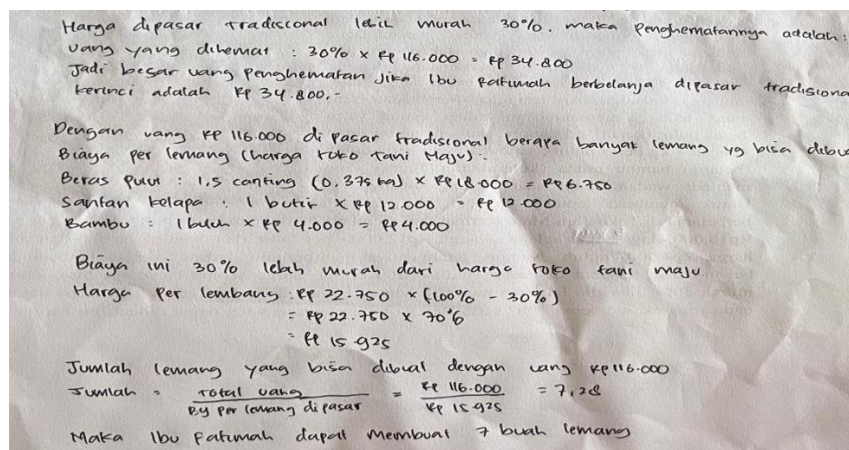 Harga dipasar tradisconal lebih murah 30%. maka penghematannya adalah :
Uang yang dihemat : 30% x Rp 116.000 = Rp 34.800
Jadi besar uang penghematan Jika Ibu Fatimah berbelanja dipasar tradisiona
Kerinci adalah Rp 34.800,-
Dengan uang Rp 116.000 di pasar tradisional berapa banyak lemang yg bisa dibua
Biaya per lemang (harga toko tani Maju) :
Beras pulut : 1,5 canting (0.375 kg) x Rp 18.000 = Rp 6.750
Santan kelapa : 1 butir x Rp 12.000 = Rp 12.000
Bambu : 1 buluh x Rp 4.000 = Rp 4.000
Biaya ini 30% lebih murah dari harga toko tani maju
Harga per lembang : Rp 22.750 x (100% - 30%)
= Rp 22.750 x 70%
= Rp 15 925
Jumlah lemang yang bisa dibuat dengan uang Rp 116.000
Jumlah = Total uang / By per lemang di pasar = Rp 116.000 / Rp 15 925 = 7,28
Maka Ibu Fatimah dapat membuat 7 buah lemang